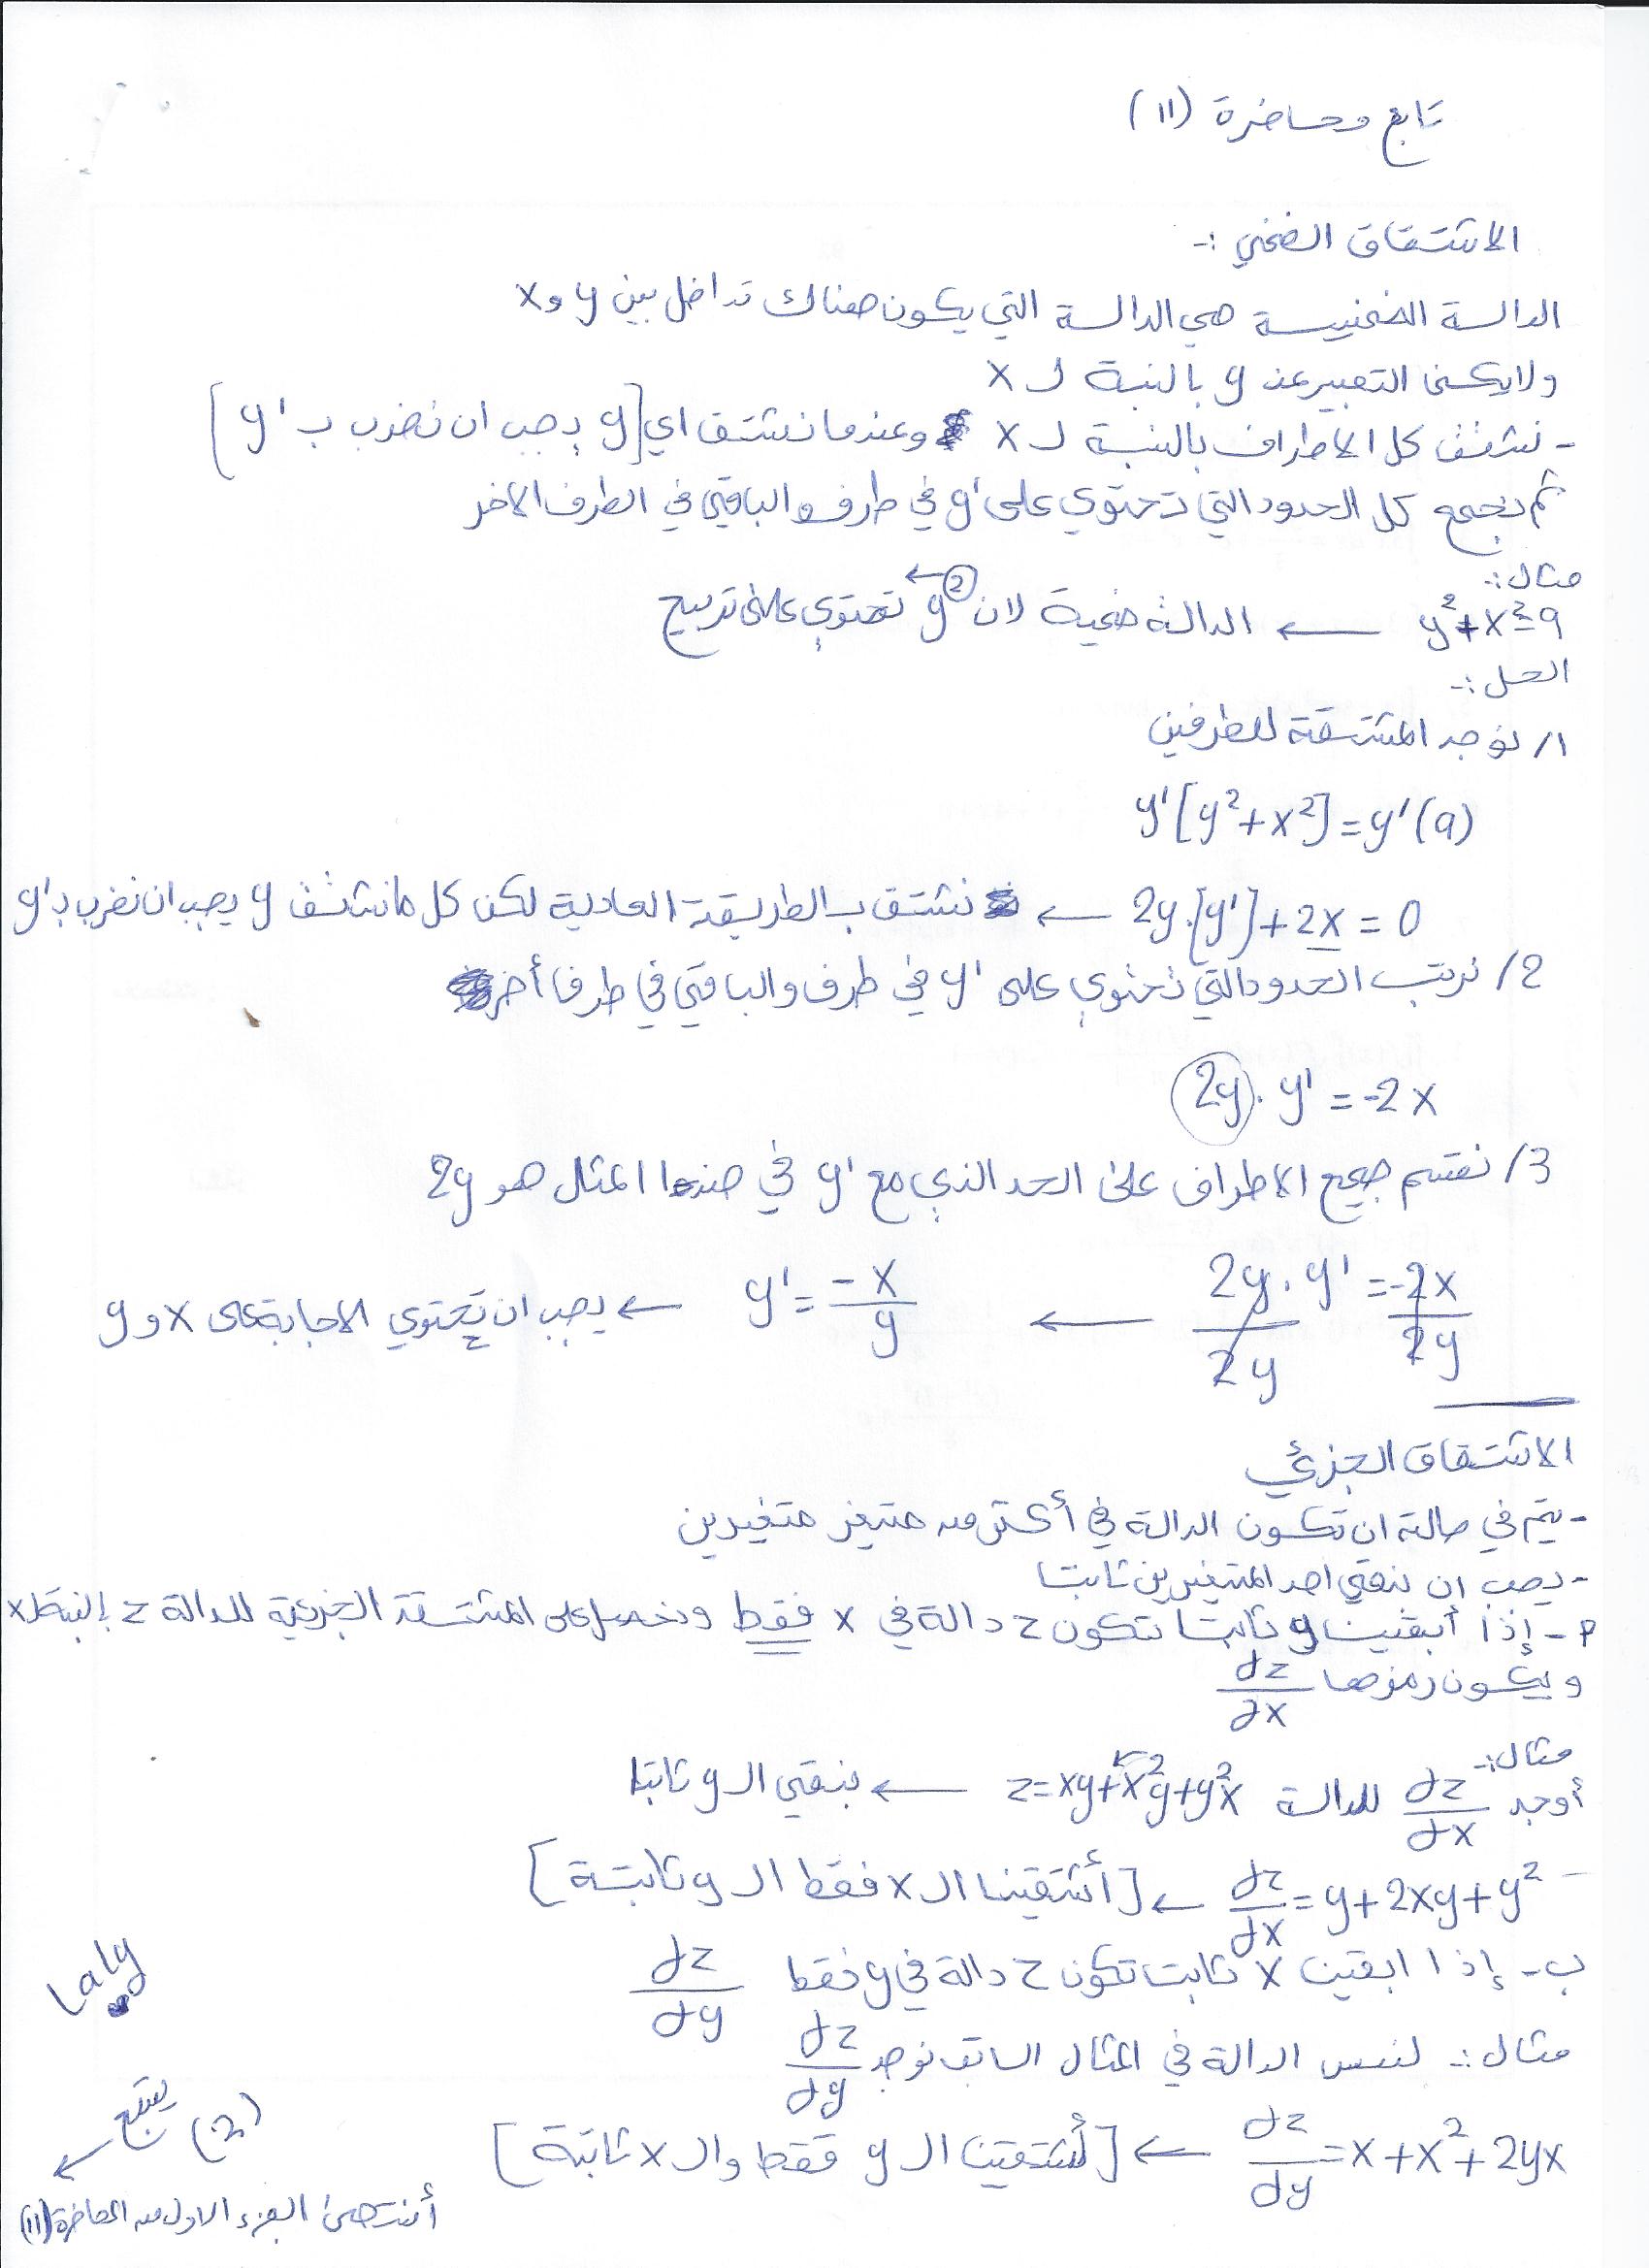 تابع محاضرة (11)
الاشتقاق الضمني :-
الدالـة الضمنيـة هي الدالـة التي يكون هناك تداخل بين y و x
ولا يمكن التعبير عن y بالنسبة لـ x
- نشتق كل الاطراف بالنسبة لـ x وعندما نشتق اي [y يجب ان نضرب بـ y']
ثم نجمع كل الحدود التي تحتوي على y' في طرف والباقي في الطرف الاخر
مثال :-
y²+x²=9 ← الدالة ضمنية لان y² ← تحتوي على تربيع
الحل :-
1/ نوجد المشتقة للطرفين
y'[y²+x²]=y'(9)
2y.[y']+2x=0 ← نشتق بالطريقة العادية لكن كل مانشتق y يجب ان نضرب بـ y'
2/ نرتب الحدود التي تحتوي على y' في طرف والباقي في طرف أخر
2y. y' = -2x
3/ نقسم جميع الاطراف على الحد الذي مع y' في هذا المثال هو 2y
2y. y'/2y = -2x/2y ← y' = -x/y ← يجب ان تحتوي الاجابة على x و y
الاشتقاق الجزئي
- يتم في حالة ان تكون الدالة في أكثر من متغير متغيرين
- يجب ان نبقي احد المتغيرين ثابت
م - إذا أبقينا y ثابت تكون z دالة في x فقط ونحصل على المشتقة الجزئية للدالة z بالنسبة لـ x
ويكون رمزها ∂z/∂x
مثال :-
أوجد ∂z/∂x للدالـة z=xy+x²y+y²x ← نبقي الـ y ثابتا
- ∂z/∂x = y+2xy+y² ← [أشتقينا الـ x فقط الـ y ثابتـة]
ب - إذا ابقينا x ثابت تكون z دالة في y فقط ∂z/∂y
مثال :- لنفس الدالة في المثال السابق نوجد ∂z/∂y
∂z/∂y = x+x²+2yx ← [أشتقينا الـ y فقط والـ x ثابتة]
Laly
يتبع (2) ←
أنتهى الجزء الاول من المحاضرة (11)